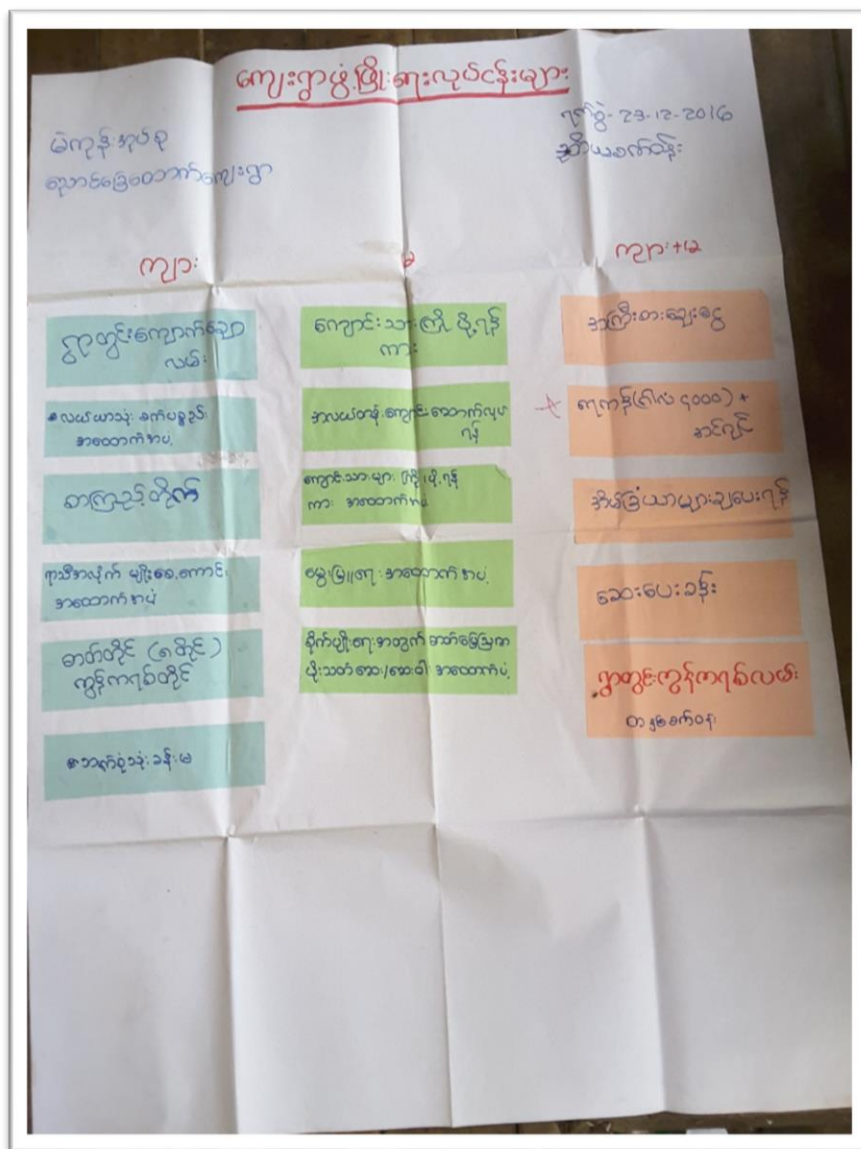 ကျေးရွာဖွံ့ဖြိုးရေးလုပ်ငန်းများ
ရက်စွဲ - 23-12-2016
မဲကုန်းအုပ်စု
ကျေးရွာ
ကျား
မ
ကျား+မ
ရွာတွင်းကျောက်ချော
လမ်း
လယ်ယာသုံး စက်ပစ္စည်း
အထောက်အပံ့
စာကြည့်တိုက်
ရာသီအလိုက် မျိုးစေ့ကောင်း
အထောက်အပံ့
ဓာတ်တိုင် (၈ တိုင်)
ကွန်ကရစ်တိုင်
ဘက်စုံသုံးခန်းမ
ကျောင်းသားကြို ပို့ရန်
ကား
အလယ်တန်းကျောင်းဆောက်လုပ်
ရန်
ကျောင်းသားများ ကြိုပို့ရန်
ကား အထောက်အပံ့
မွေးမြူရေး အထောက်အပံ့
စိုက်ပျိုးရေးအတွက် ဓာတ်မြေဩဇာ
ပိုးသတ်ဆေး/ဆေးဝါး အထောက်ပံ့
အကြီးစားချေးငွေ
ရေကန်(ဂါလံ ၄၀၀၀) +
အင်ဂျင်
အိမ်ခြံယာများချပေးရန်
ဆေးပေးခန်း
ရွာတွင်းကွန်ကရစ်လမ်း